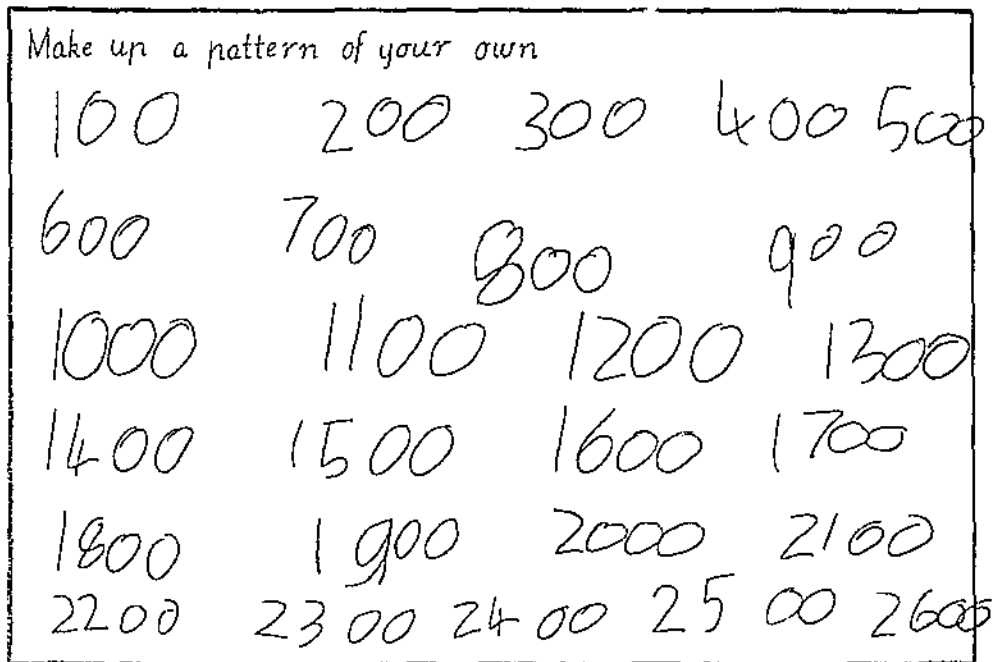 Make up a pattern of your own
100 200 300 400 500
600 700 800 900
1000 1100 1200 1300
1400 1500 1600 1700
1800 1900 2000 2100
2200 2300 2400 2500 2600